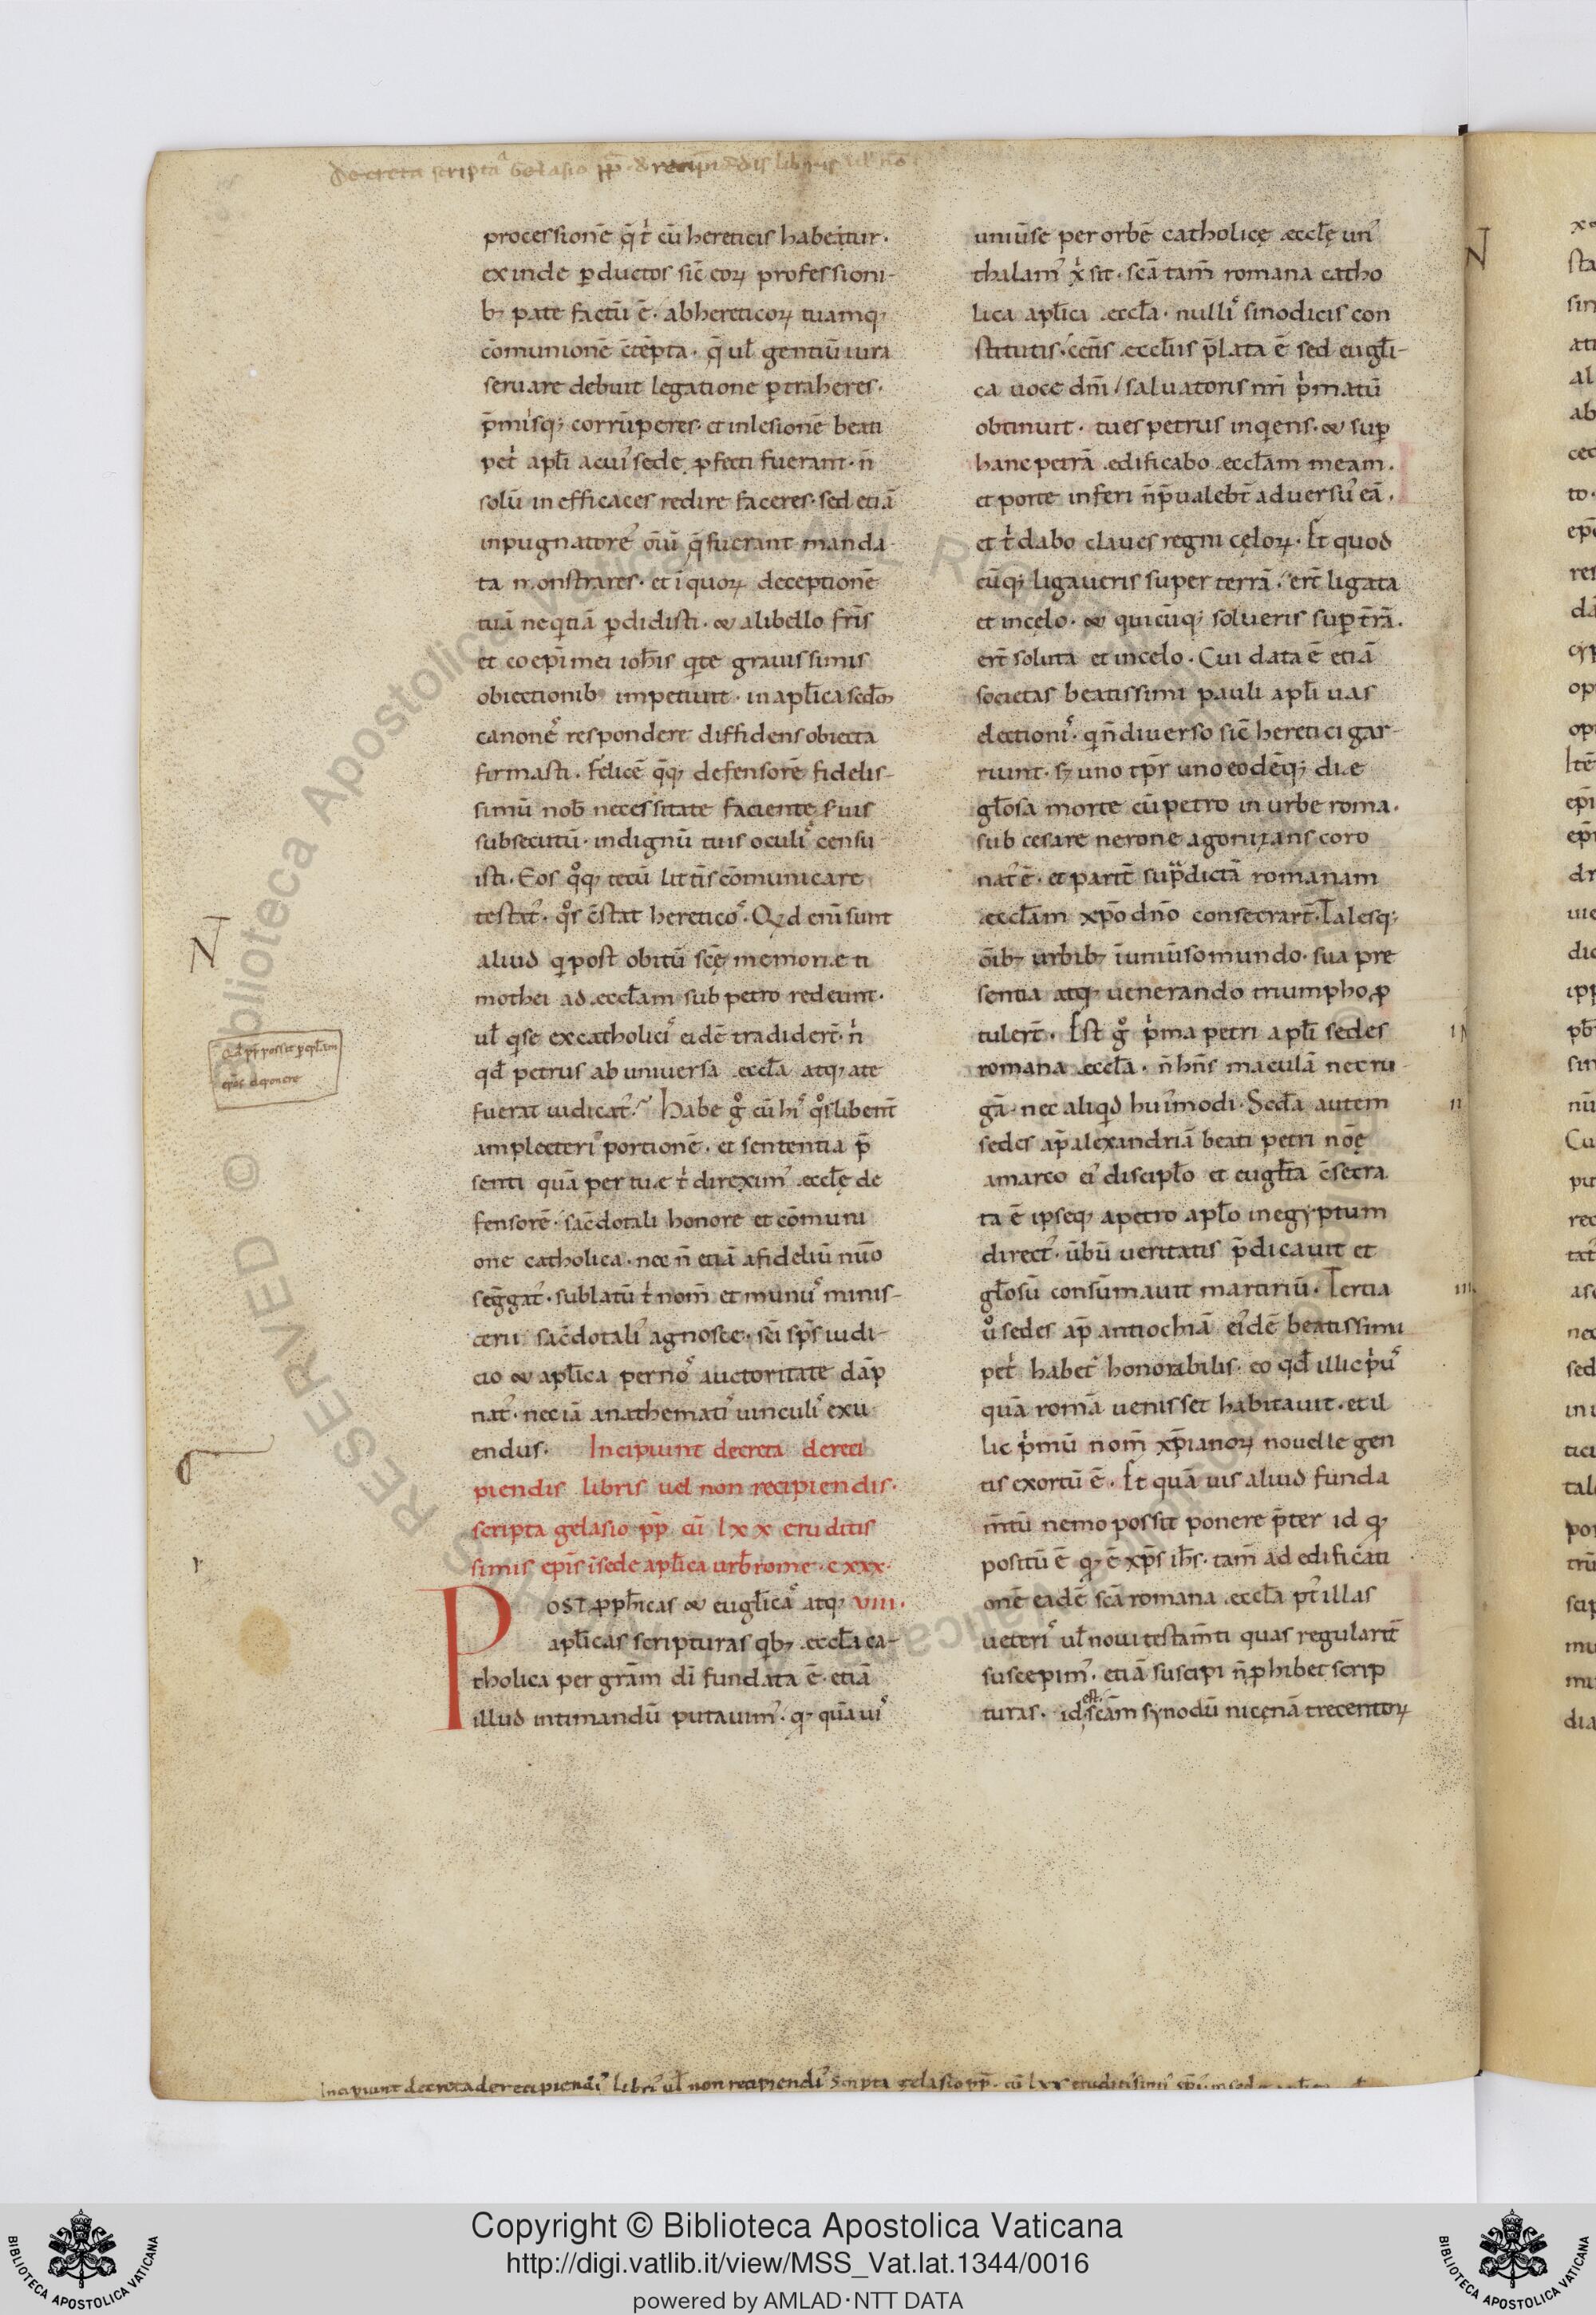 Decreta scripta a Gelasio pp̄ de recipiēdis libris ul̄ nō
processionē q̄ t̓ cū hereticis habeatur·
exinde ꝑductos sic̄ eoꝝ professioni-
bꝫ pate factū ē· ab hereticoꝝ tuamqꝫ
cōmunionē c̄tēpta· q̄ ul̄ gentiū iura
seruare debuit legatione ꝑtraheres·
p̄mi̓sqꝫ corrūperes· et in lesionē beati
pet̓ apl̄i a cui᾽ sede ꝓfecti fuerant· n̄
solū in efficaces redire faceres· sed etiā
inpugnatore᾽ oīu᷒ q̄ fuerant manda-
ta monstrares· et ī quoꝝ deceptionē
tuā neqtiā ꝑdidisti· & a libello fr̄is
et coepī mei ioh̄is q te grauissimis
obiectionibꝫ impetiuit· in apl̄ica sede
canone᾽ respondere diffidens obiecta
firmasti· Felicē q̄qꝫ defensorē fidelis-
simū nob̄ necessitate faciente suis
subsecutū· indignū tuis oculi᾽ censu
isti· Eos q̊qꝫ tecū litt̄is cōmunicare
testat᾽· q̊s c̄stat heretico᾽· Qd enī sunt
aliud q post obitū scē memoriæ ti
mothei ad æccl̄am sub petro redeunt·
ul̄ q se ex catholici᾽ eidē tradider̄t· n̓
qd̄ petrus ab uniuersa æccl̄a atqꝫ a te
fuerat iudicat᾽· Habe g̊ cū hi᾽ q̊s libent̄
amplecteri᾽ portionē· et sententia p̄
senti quā per tuæ t̓ direxim᾽ æccl̄ę de
fensorē· sac̄dotali honore et cōmuni
one catholica· nec n̄ etiā a fideliū num̄o
seḡgat᾽· sublatū t̓ nom̄ et munu᾽ minis-
terii sac̄dotali᾽ agnosce· scī sp̄s iudi-
cio & apl̄ica per no᾽ auctoritate dāp
nat᾽· nec iā anathemati᾽ uinculi᾽ exu
endus· Incipiunt decreta de reci
piendis libris uel non recipiendis·
scripta gelasio pp̄ cū lxx eruditis
simis ep̄is ī sede apl̄ica urb̄ rome· cxxx·
Post ꝓph̄icas & eugl̄ica᾽ atqꝫ VIII·
apl̄icas scripturas qbꝫ æccl̄a ca-
tholica per grām dī fundata ē· etiā
illud intimandū putauim᾽· qꝫ quāui᾽
uniūse per orbē catholicę æccl̄ę un᾽
thalam᾽ x̓ sit· scā tam̄ romana catho
lica apl̄ica æccl̄a· nulli᾽ sinodicis con
stitutis· cet̄is æccl̄iis p̄lata ē sed eugl̄i-
ca uoce dnī saluatoris nrī p̓matū
obtinuit· tu es petrus inqens· & suꝑ
hanc petrā ædificabo æccl̄am meam·
et porte inferi n̄ p̄ualebt̄ aduersu᾽ eā·
et t̓ dabo claues regni cęloꝝ· Et quod
cūqꝫ ligaueris super terrā· ert̄ ligata
et in cęlo· & quicūqꝫ solueris suꝑ t̄rā·
ert̄ soluta et in cęlo· Cui data ē etiā
societas beatissimi pauli apl̄i uas
electioni᾽· q n̄ diuerso sic̄ heretici gar-
riunt· sꝫ uno tp̄r uno eodēqꝫ die
gl̄osa morte cū petro in urbe roma·
sub cesare nerone agonizans coro
nat᾽ ē· et parit̄ sup̄dictā romanam
æccl̄am xp̄o dn̄o consecrart̄· Talesqꝫ
oībꝫ urbibꝫ ī uniūso mundo· sua pre
sentia atqꝫ uenerando triumpho ꝓ
tulert̄· Est g̊ p̓ma petri apl̄i sedes
romana æccl̄a· n̄ hn̄s maculā nec ru
gā· nec aliqd hui᾽modi· Scd̄a autem
sedes ap̄ alexandriā beati petri noīę
a marco ei᾽ discipl̄o et eugl̄ta c̄secra
ta ē ipseqꝫ a petro apl̄o in egyptum
direct᾽· ūbū ueritatis p̄dicauit et
gl̄osū consūmauit martiriū· Tertia
ů sedes ap̄ antiochiā ei᾽dē beatissimi
pet̓ habet᾽ honorabilis· eo qd̄ illic p̓u᾽
quā romā uenisset habitauit· et il
lic p̓mū nom̄ xp̄ianoꝝ nouelle gen
tis exortū ē· Et quā uis aliud funda
m̄tū nemo possit ponere p̄ter id qꝫ
positū ē qꝫ ē xp̄s ih̄s· tam̄ ad edificati
onē eadē scā romana æccl̄a pt᾽ illas
ueteri᾽ ul̄ noui testam̄ti quas regularit̄
suscepim᾽· etiā suscipi n̄ ꝓhibet scrip
turas· id est scām synodū nicęnā trecentoꝝ
N
N
I
II
III
Qd̄ pp̄ posset ꝑ epl̄am
ep̄os deponere
Incipiunt decreta de recipiendi᾽ libri᾽ ul̄ non recipiendi᾽ scripta gelasio pp̄· cū lxx eruditissimi᾽ ep̄i᾽ in sede
Biblioteca Apostolica Vaticana ALL RIGHTS RESERVED ©
Copyright © Biblioteca Apostolica Vaticana
http://digi.vatlib.it/view/MSS_Vat.lat.1344/0016
powered by AMLAD·NTT DATA
BIBLIOTECA APOSTOLICA VATICANA
BIBLIOTECA APOSTOLICA VATICANA